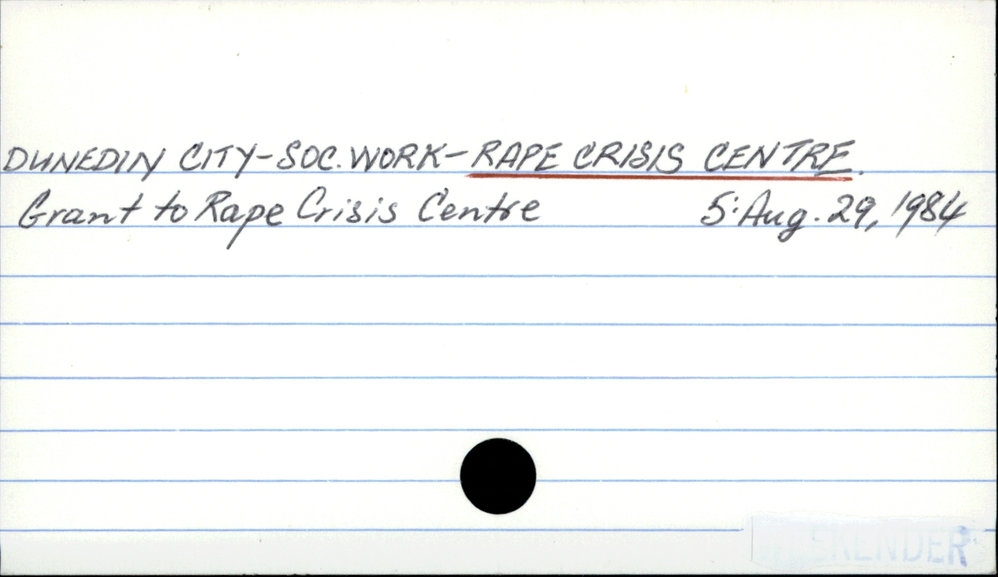 DUNEDIN CITY-SOC. WORK-RAPE CRISIS CENTRE.
Grant to Rape Crisis Centre 5: Aug. 29, 1984